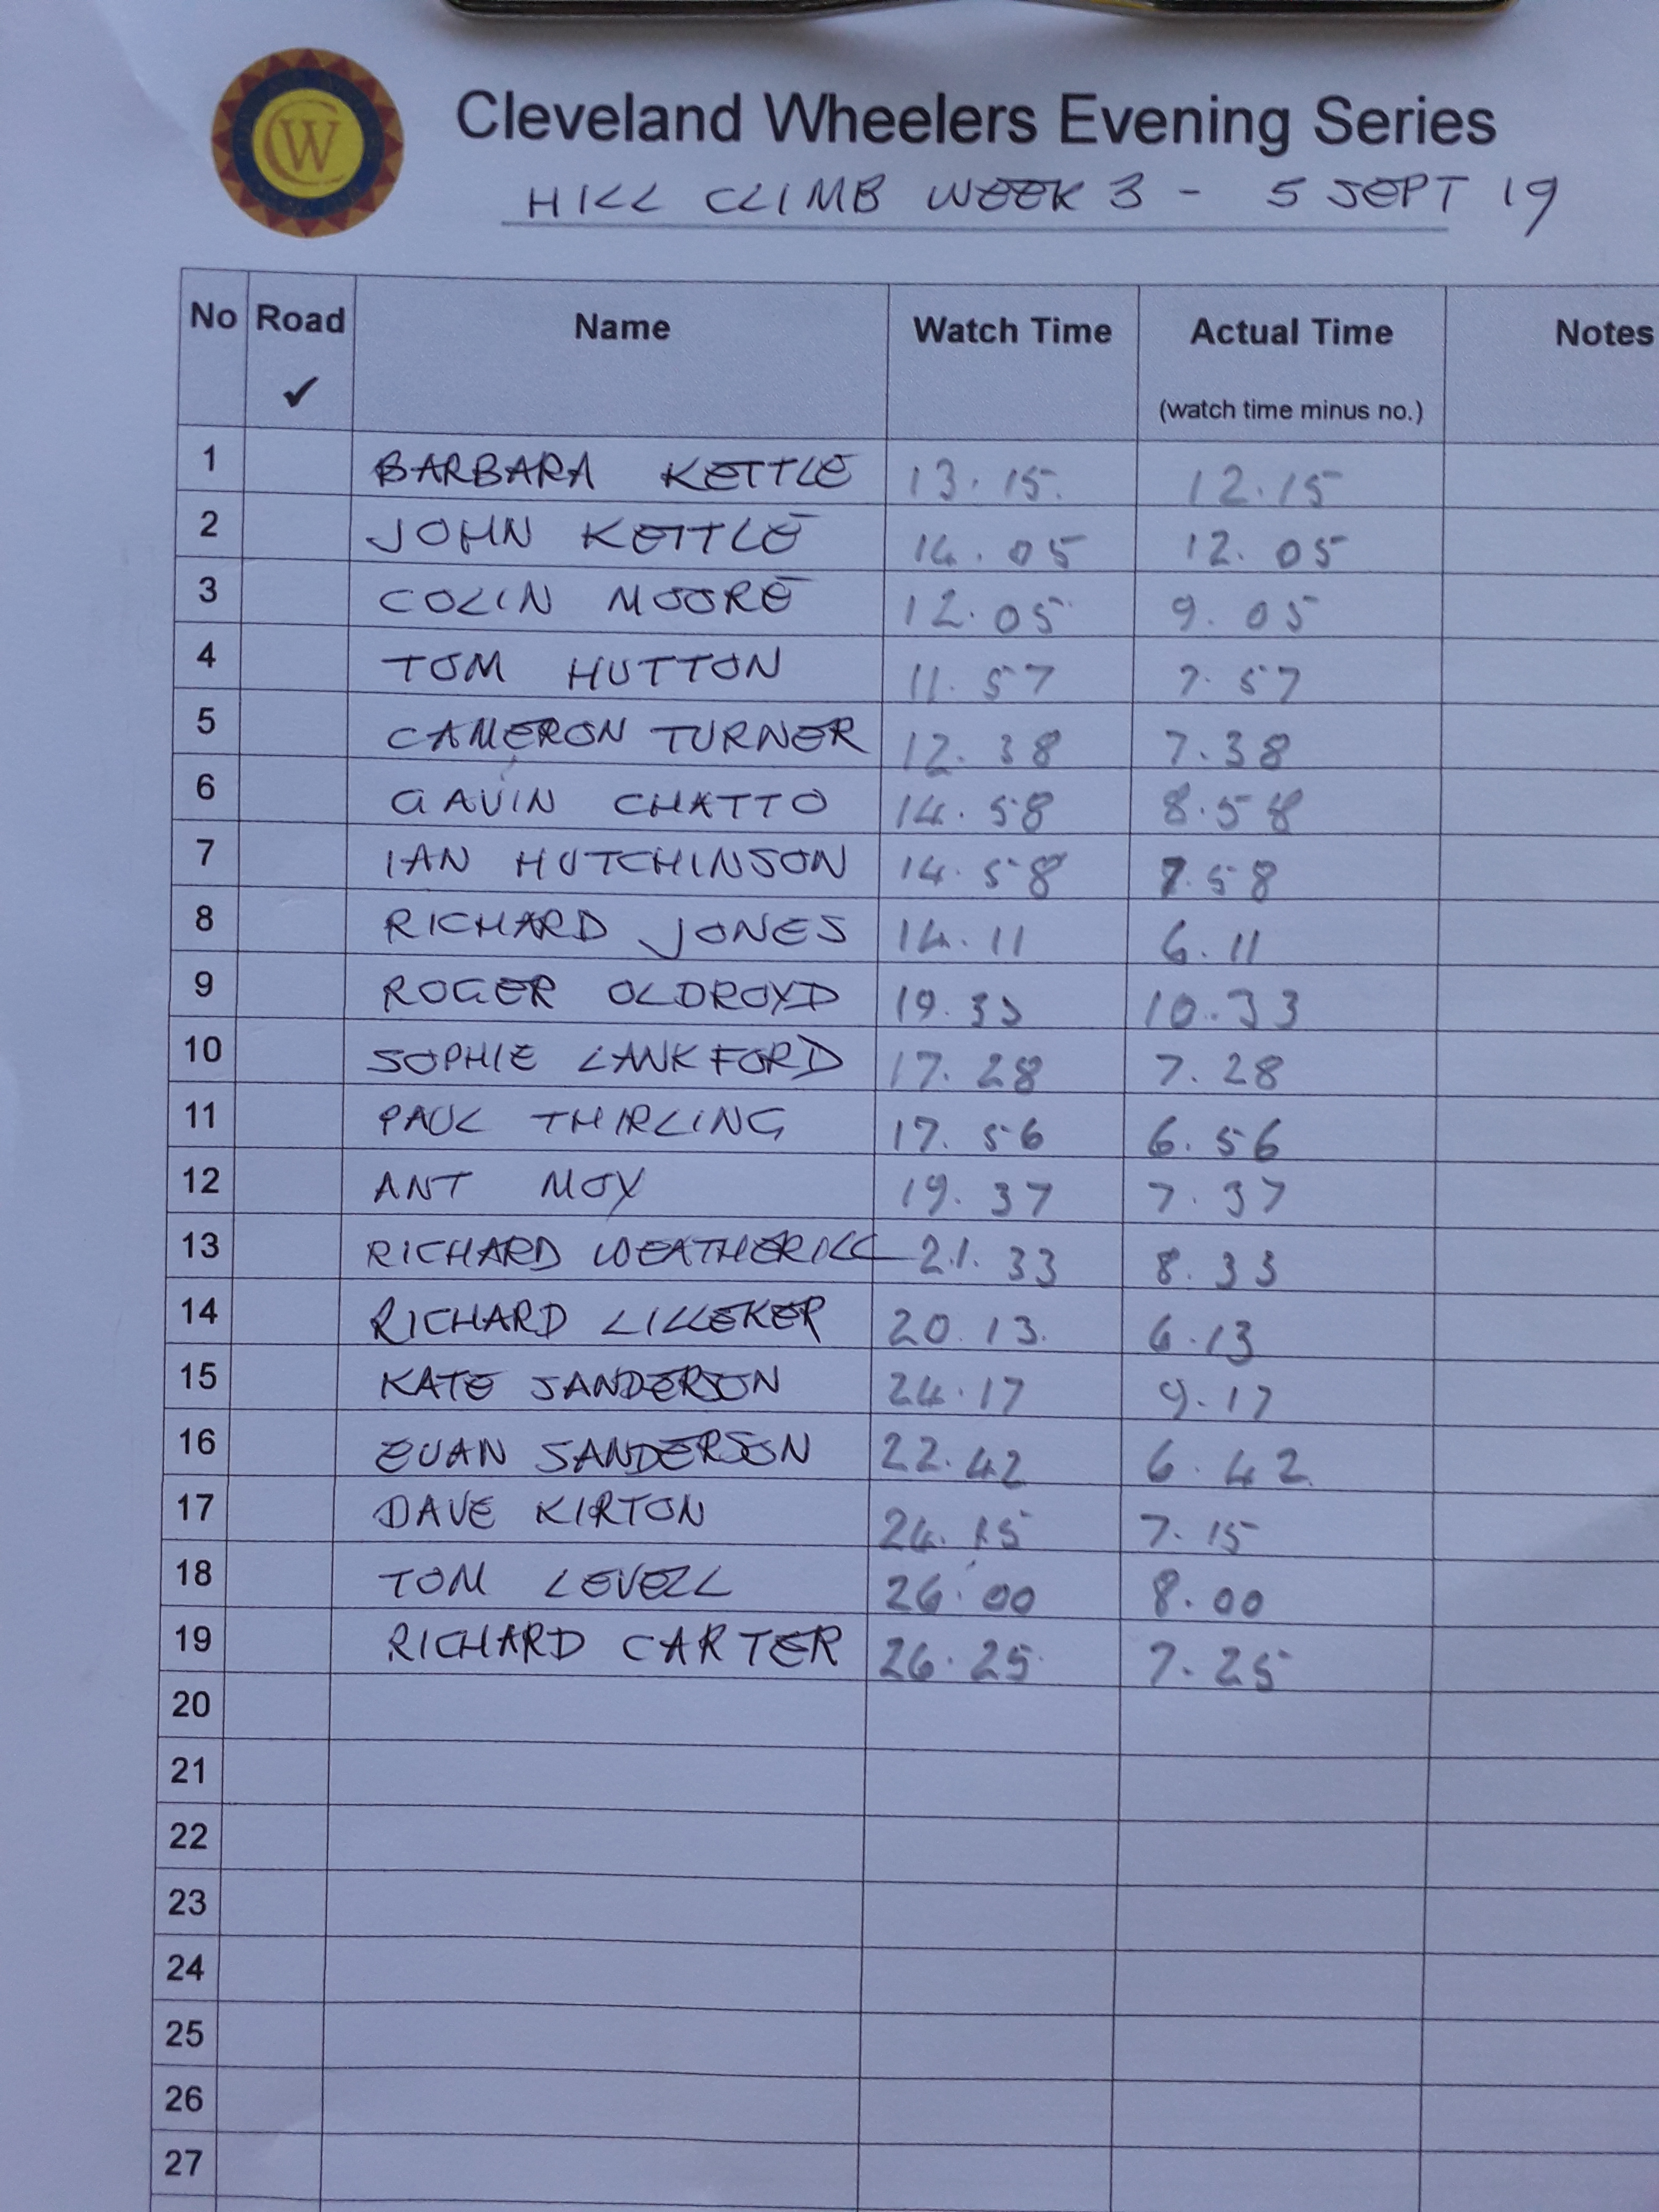 CW
Cleveland Wheelers Evening Series
HILL CLIMB WEEK 3 - 5 SEPT 19
No Road Name Watch Time Actual Time Notes
✓ (watch time minus no.)
1 BARBARA KETTLE 13.15. 12.15
2 JOHN KETTLE 14.05 12.05
3 COLIN MOORE 12.05 9.05
4 TOM HUTTON 11.57 7.57
5 CAMERON TURNER 12.38 7.38
6 GAVIN CHATTO 14.58 8.58
7 IAN HUTCHINSON 14.58 7.58
8 RICHARD JONES 14.11 6.11
9 ROGER OLDROYD 19.33 10.33
10 SOPHIE LANKFORD 17.28 7.28
11 PAUL THIRLING 17.56 6.56
12 ANT MOY 19.37 7.37
13 RICHARD WEATHERILL 21.33 8.33
14 RICHARD LILLEKER 20.13. 6.13
15 KATE SANDERSON 24.17 9.17
16 EUAN SANDERSON 22.42 6.42.
17 DAVE KIRTON 24.15 7.15
18 TOM LEVELL 26.00 8.00
19 RICHARD CARTER 26.25 7.25
20
21
22
23
24
25
26
27